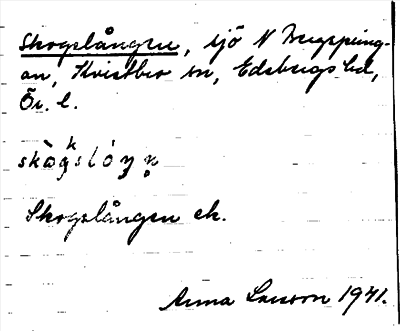 Skogslången, sjö N Bergsping-
en, Kvistbro sn, Edsbergs hd,
Ör. l.
skògslóŋn̥
k
Skogslången ek.
Anna Larsson 1941.